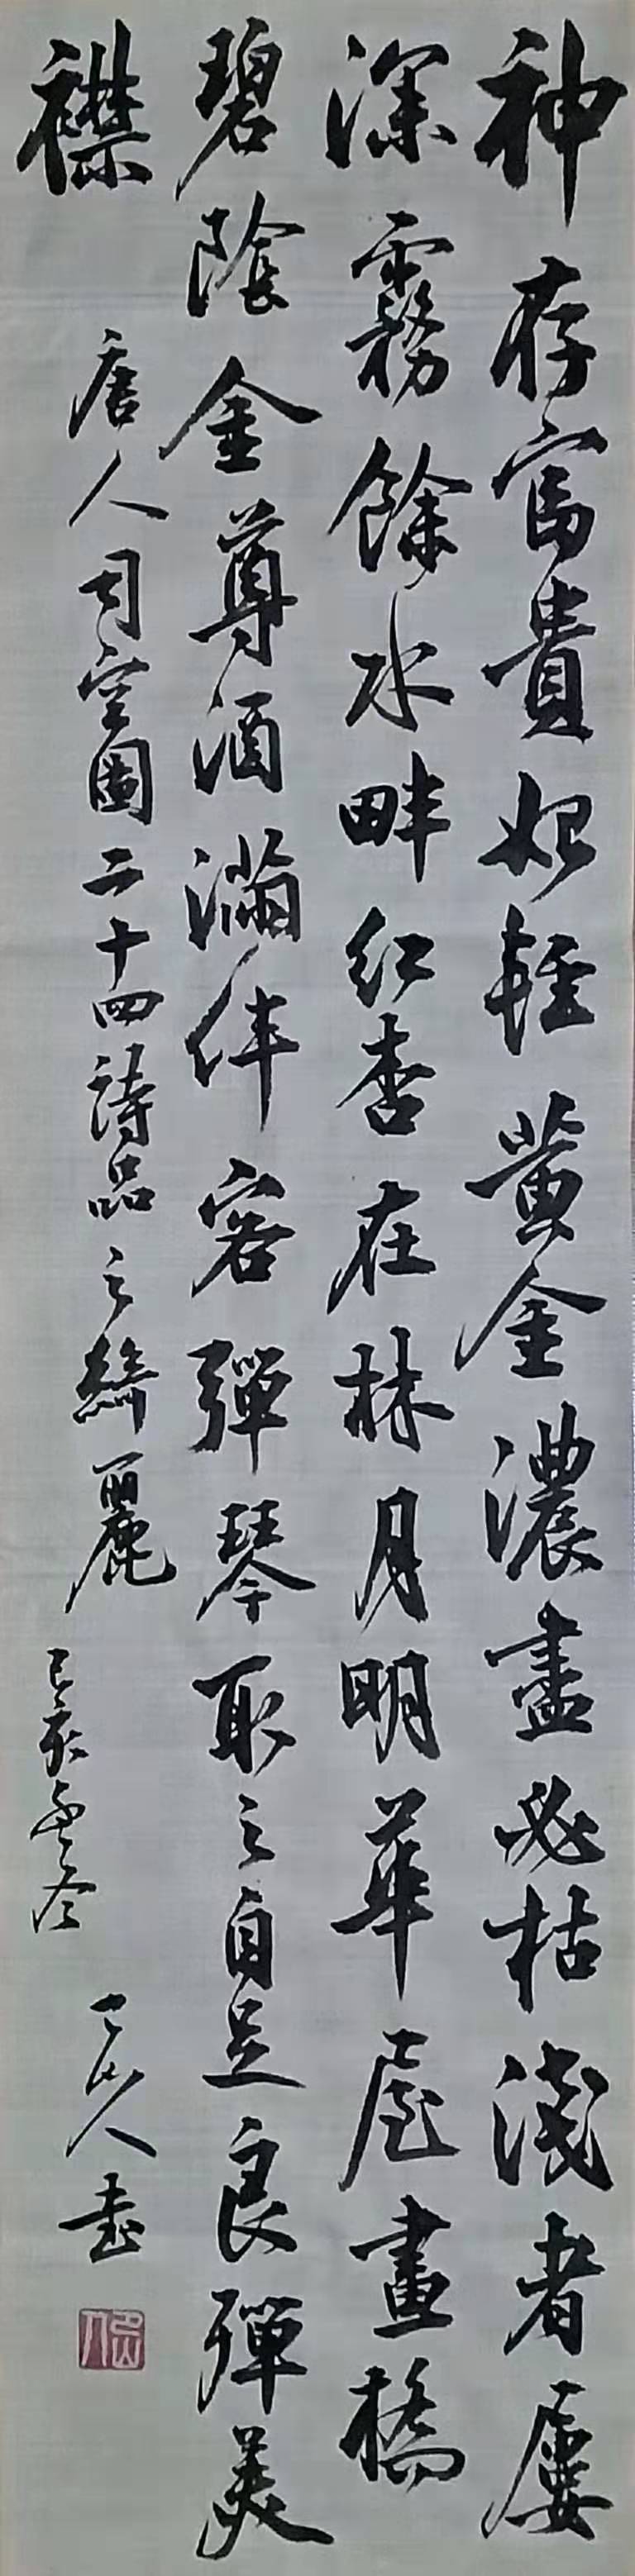 神存富貴始輕黃金濃盡必枯淺者屢
深霧餘水畔紅杏在林月明華屋畫橋
碧陰金尊酒滿伴客彈琴取之自足良彈美
襟
唐人司空圖二十四詩品之綺麗
己亥
山人書